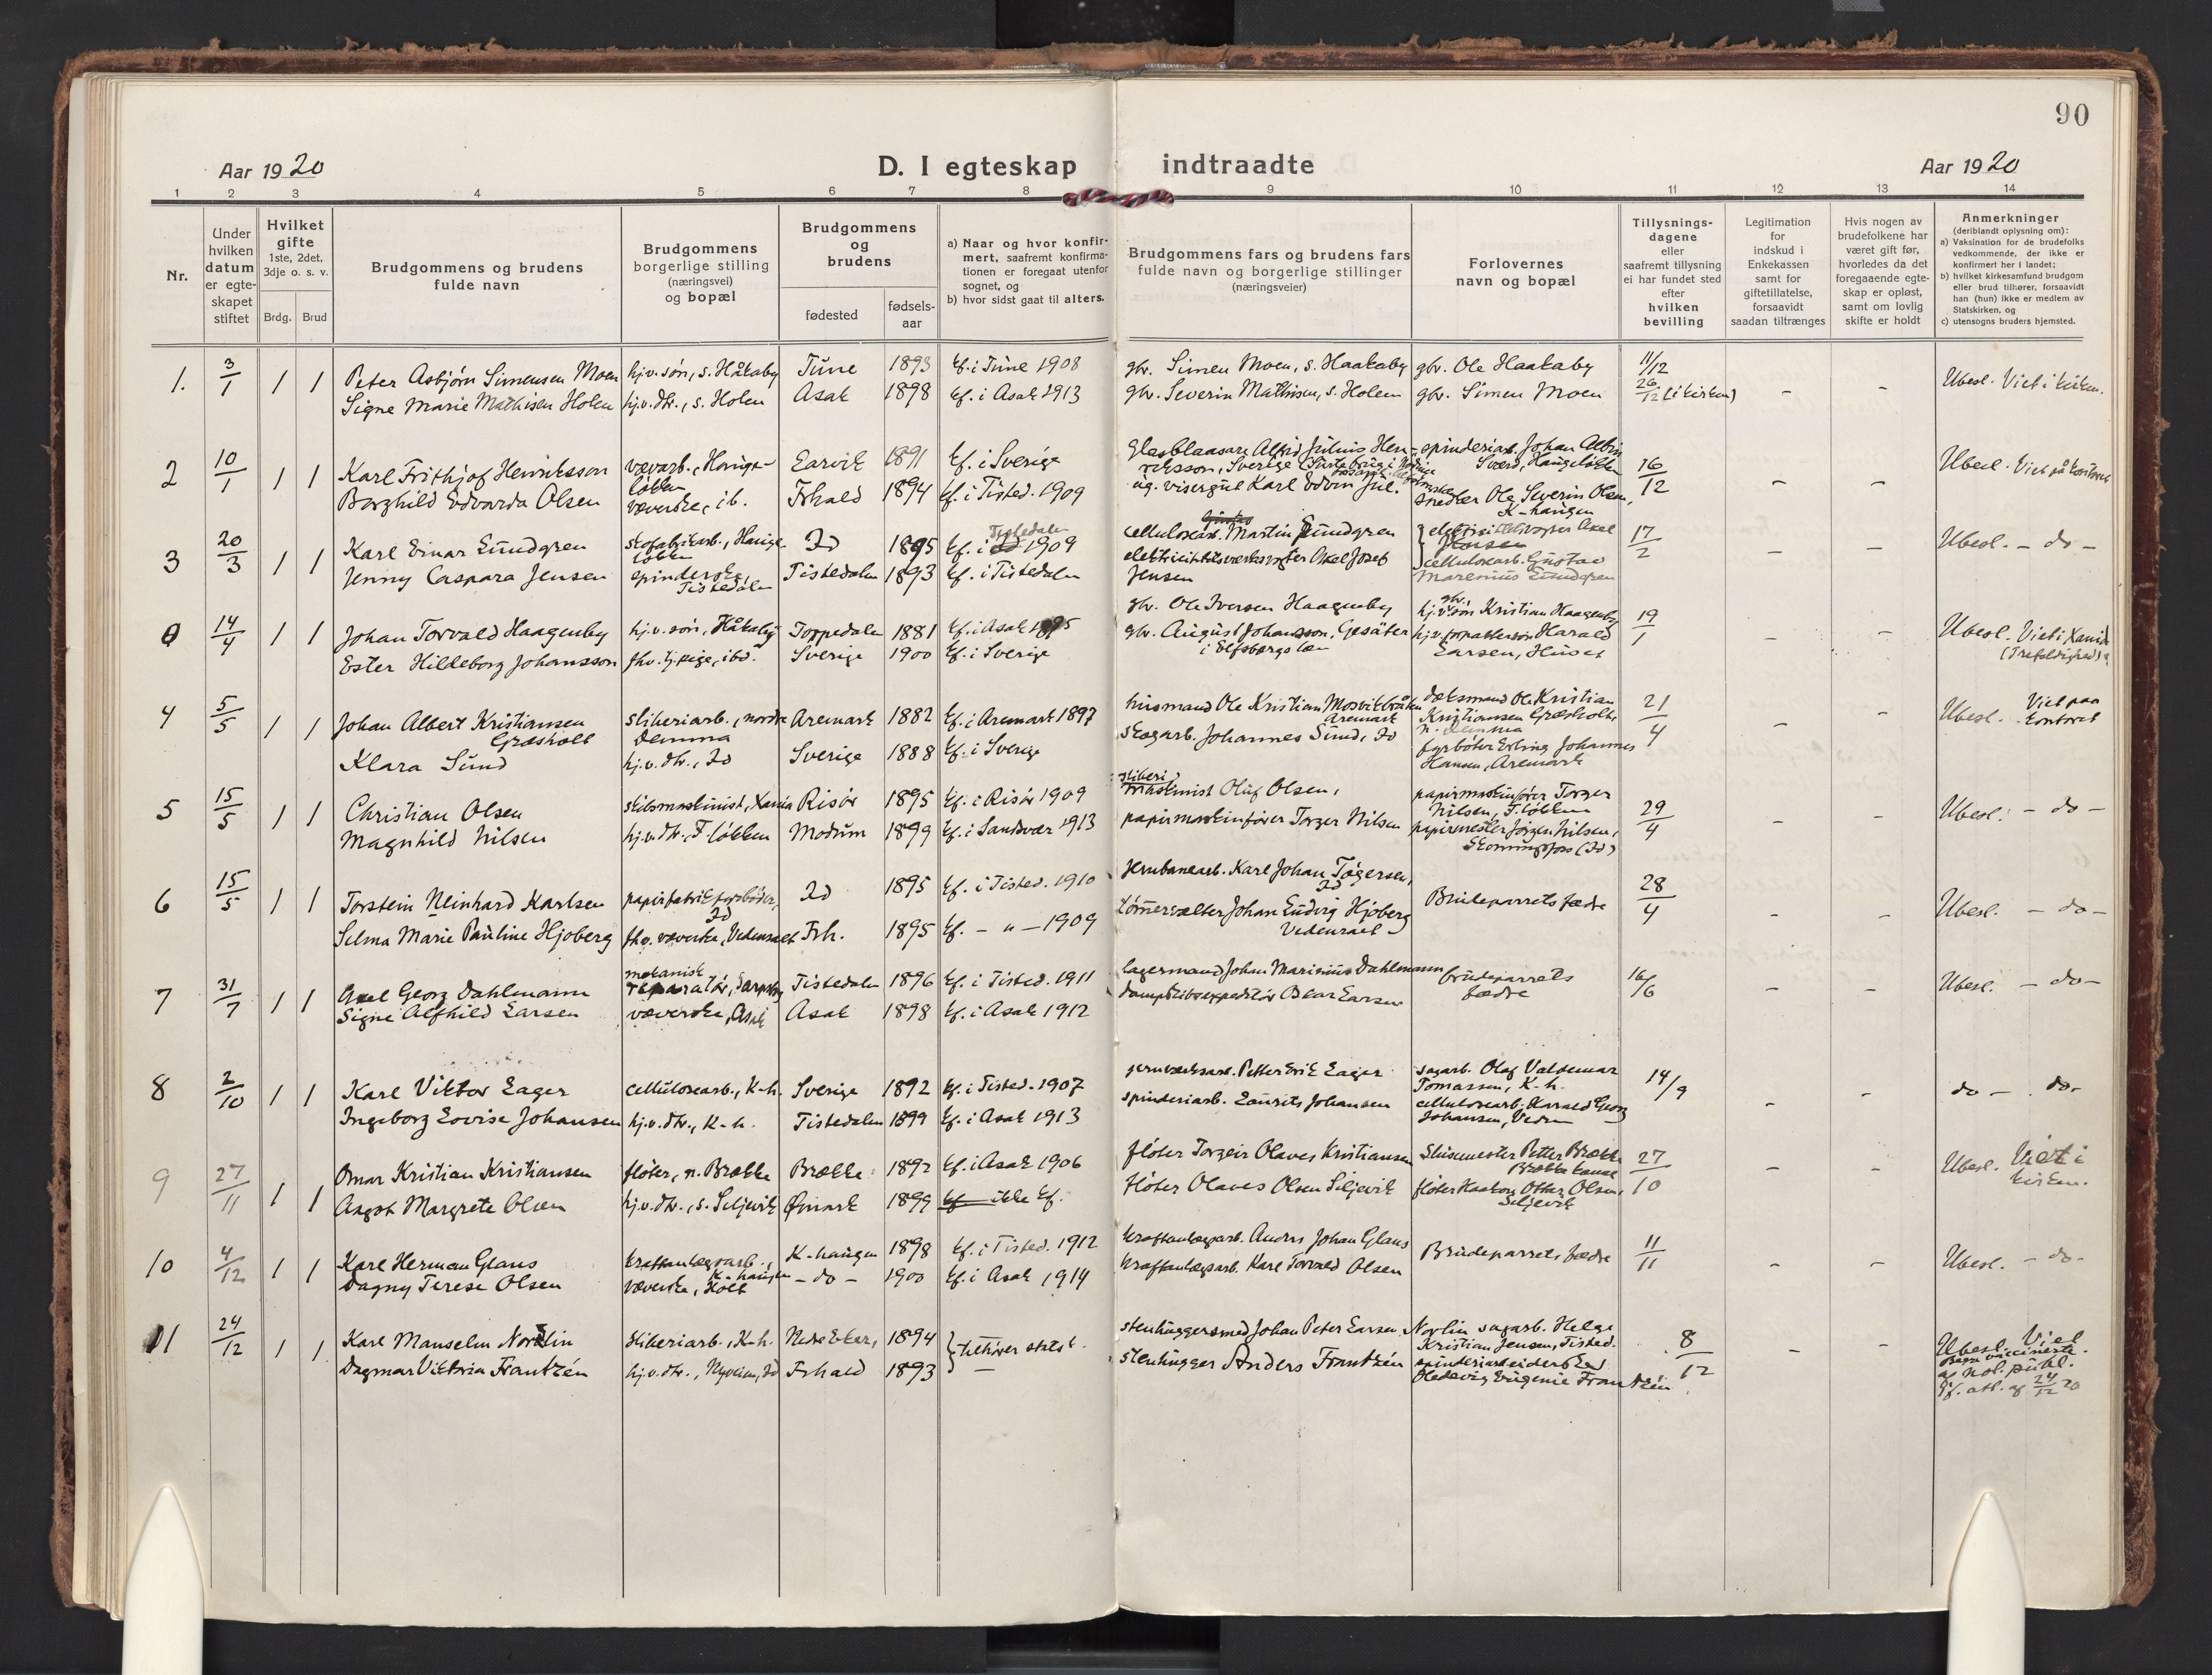 90
Aar 1920
D. I egteskap indtraadte
Aar 1920
1 2 3 4 5 6 7 8 9 10 11 12 13 14
Nr.
Under hvilken datum er egte-skapet stiftet
Hvilket gifte
1ste, 2det, 3dje o. s. v.
Brdg. Brud
Brudgommens og brudens fulde navn
Brudgommens borgerlige stilling (næringsvei) og bopæl
Brudgommens og brudens
fødested
fødsels-aar
a) Naar og hvor konfir-mert, saafremt konfirma-tionen er foregaat utenfor sognet, og
b) hvor sidst gaat til alters.
Brudgommens fars og brudens fars fulde navn og borgerlige stillinger (næringsveier)
Forlovernes navn og bopæl
Tillysnings-dagene eller saafremt tillysning ei har fundet sted efter hvilken bevilling
Legitimation for indskud i Enkekassen samt for giftetillatelse, forsaavidt saadan tiltrænges
Hvis nogen av brudefolkene har været gift før, hvorledes da det foregaaende egte-skap er opløst, samt om lovlig skifte er holdt
Anmerkninger (deriblandt oplysning om):
a) Vaksination for de brudefolks vedkommende, der ikke er konfirmert her i landet;
b) hvilket kirkesamfund brudgom eller brud tilhører, forsaavidt han (hun) ikke er medlem av Statskirken, og
c) utensogns bruders hjemsted.
1. 3/1 1 1 Peter Asbjørn Simensen Moen hj.v. søn, s. Håkaby Tune 1893 kf. i Tune 1908 gbr. Simen Moen, s. Haakaby gbr. Ole Haakaby 11/12
Signe Marie Mathisen Holen hj.v. dtr., s. Holen Asak 1898 kf. i Asak 1913 gbr. Severin Mathisen, s. Holem gbr. Simen Moen 26/12 (i kirken) - - Ubesl. Viet i kirken.
2 10/1 1 1 Karl Frithjof Henriksson vævarb., Hauge-løkken Larvik 1891 kf. i Sverige Glasblaaser Alfrid Julius Hen-riksson, Sverige spinderiarb. Johan Albin Sværd, Haugeløkken 16/12
Borghild Edvarda Olsen væverske, ib. Frhald 1894 kf. i Tisted. 1909 ug. visergut Karl Edvin Jul. snedker Ole Severin Olsen, K-haugen - - Ubesl. Viet på kontoret
3 20/3 1 1 Karl Einar Lundgren skofabrikarb., Hauge-løkken Id 1895 kf. i Tistedalen 1909 cellulosearb. Martin Lundgren elektricitetsvogter Axel Jensen 17/2
Jenny Caspara Jensen spinderske, Tistedalen Tistedalen 1893 kf. i Tistedalen elektricitetsverksvogter Axel Josef Jensen cellulosearb. Gustav Marenius Lundgren - - Ubesl. - do -
0 14/4 1 1 Johan Torvald Haagenby hj.v. søn, Håkaby Torpedalen 1881 kf. i Asak gbr. Ole Iversen Haagenby hj.v. søn Kristian Haagenby 19/1
Ester Hildeborg Johansson fhv. tj.pige, ibd. Sverige 1900 kf. i Sverige gbr. August Johansson, Gesäter i Elfsborgs læn hj.v. forpaktersøn Harald Larsen, Huset - - Ubesl. Viet i Xania (Trefoldighed)
4 5/5 1 1 Johan Albert Kristiansen Græsholt sliberiarb., nordre Demma Aremark 1882 kf. i Aremark 1897 husmand Ole Kristian Mosvikbråten Aremark dæksmand Ole Kristian Kristiansen Græsholt, n. Demma 21/4
Klara Sund hj.v. dtr., Id Sverige 1888 kf. i Sverige skogarb. Johannes Sund, Id fyrbøter Erling Johannes Hansen, Aremark - - Ubesl. Viet paa kontoret
5 15/5 1 1 Christian Olsen skibsmaskinist, Xania Risør 1895 kf. i Risør 1909 sliberi maskinist Oluf Olsen, papirmaskinfører Torger Nilsen, F-løkken 29/4
Magnhild Nilsen hj.v. dtr., F-løkken Modum 1899 kf. i Sandsvær 1913 papirmaskinfører Torger Nilsen papirmester Jørgen Nilsen, Skonningsfoss (Id) - - Ubesl. - do -
6 15/5 1 1 Torstein Meinhard Karlsen papirfabrikfyrbøder, Id Id 1895 kf. i Tisted. 1910 Jernbanearb. Karl Johan Tøgersen, Id Brudeparrets fædre 28/4
Selma Marie Pauline Hjoberg fhv. væverske, Vedensaet Frh. 1895 kf. - " - 1909 tømmervælter Johan Ludvig Hjoberg Vedensaet - - Ubesl. - do -
7 31/7 1 1 Axel Georg Dahlmann mekanisk reparatør, Sarpsborg Tistedalen 1896 kf. i Tisted. 1911 lagermand Johan Marinius Dahlmann brudeparrets fædre 16/6
Signe Alfhild Larsen væverske, Asak Asak 1898 kf. i Asak 1912 dampskibsexpeditør Oscar Larsen - - Ubesl. - do -
8 2/10 1 1 Karl Viktor Lager cellulosearb., K-h. Sverige 1892 kf. i Tisted. 1907 jernverksarb. Petter Erik Lager sagarb. Olaf Valdemar Tomassen, K-h. 14/9
Ingeborg Lovise Johansen hj.v. dtr., K-h. Tistedalen 1899 kf. i Asak 1913 spinderiarb. Laurits Johansen cellulosearb. Harald Georg Johansen, Veden - - do - do -
9 27/11 1 1 Omar Kristian Kristiansen fløter, n. Brække Brække 1892 kf. i Asak 1906 fløter Torgeir Olaves Kristiansen Slusemester Petter Brække Brække kanal 27/10
Aagot Margrete Olsen hj.v. dtr., s. Siljevik Ømark 1899 kf ikke kf. fløter Olaves Olsen Siljevik fløter Haakon Ottar Olsen, Siljevik - - Ubesl. Viet i kirken.
10 4/12 1 1 Karl Herman Glans kraftanlægsarb., K-haugen K-haugen 1898 kf. i Tisted. 1912 kraftanlægsarb. Anders Johan Glans Brudeparrets fædre 11/11
Dagny Terese Olsen væverske, Holt - do - 1900 kf. i Asak 1914 kraftanlægsarb. Karl Torvald Olsen - - Ubesl. - do -
11 24/12 1 1 Karl Manselm Norlin sliberiarb., K-h. Nedre Eker, 1894 } tilhører statsk. stenhuggersmed Johan Peter Larsen Norlin sagarb. Helge Kristian Jensen, Tisted. 8/12
Dagmar Viktoria Frantzén hj.v. dtr., Nyveien, Id Frhald 1893 stenhugger Anders Frantzén spinderiarbeiderske Hedevig Eugenie Frantzén - - Ubesl. Viet. Begge vaccinerte. af Not. publ. if. att. af 24/12 20